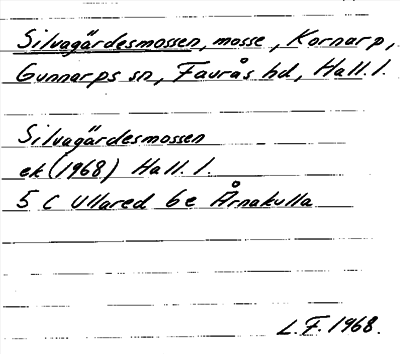 Silvagärdesmossen, mosse, Kornarp,
Gunnarps sn, Faurås hd, Hall. l.
Silvagärdesmossen
ek (1968) Hall. l.
5 C Ullared 6e Årnakulla
L.F. 1968.